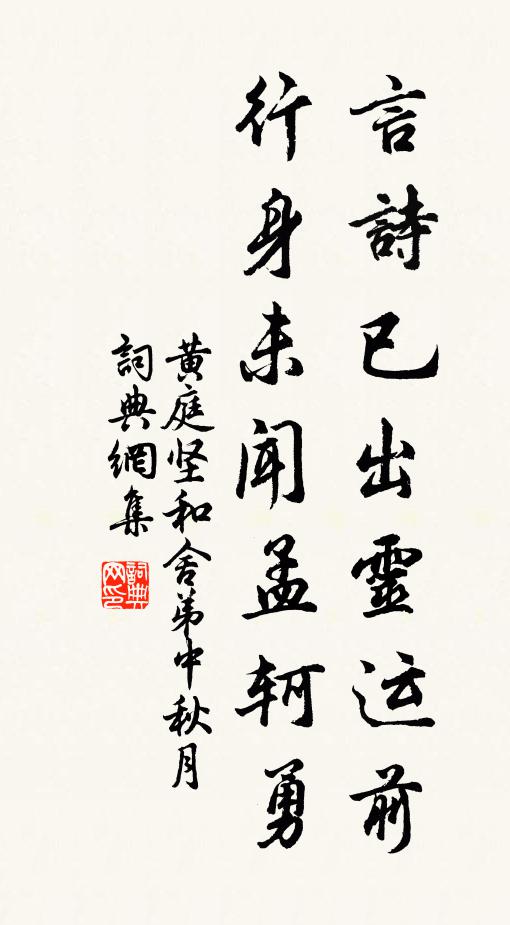 言詩已出靈运前
行身未聞孟轲勇
黃庭坚和舍弟中秋月
詞典網集
詞典
网印